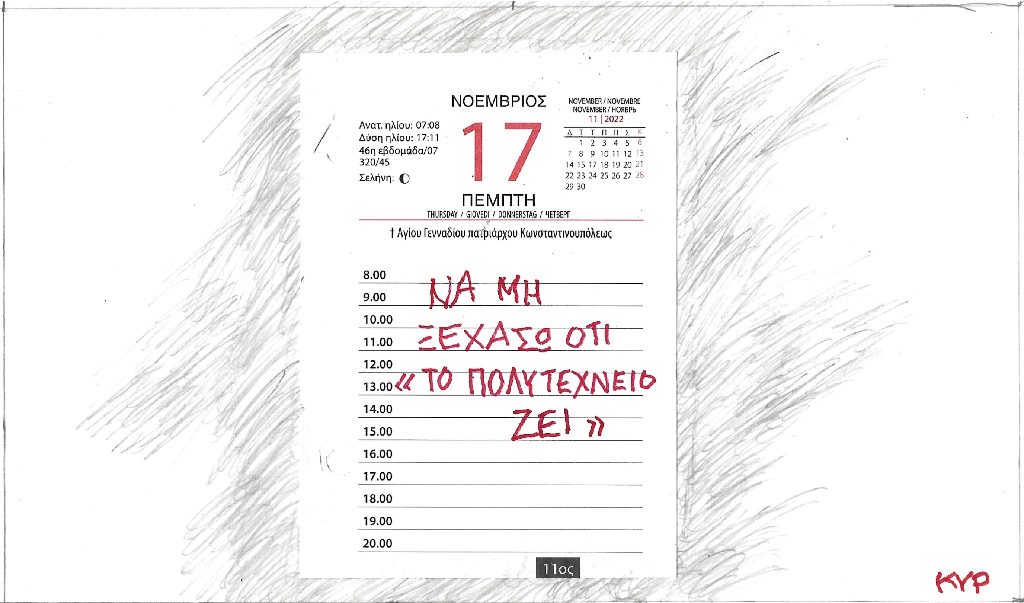 ΝΟΕΜΒΡΙΟΣ
17
ΠΕΜΠΤΗ
THURSDAY / GIOVEDI / DONNERSTAG / ЧЕТВЕРГ
Ανατ. ηλίου: 07:08
Δύση ηλίου: 17:11
46η εβδομάδα/07
320/45
Σελήνη:
NOVEMBER / NOVEMBRE
NOVEMBER / НОЯБРЬ
11 | 2022
Δ Τ Τ Π Π Σ Κ
1 2 3 4 5 6
7 8 9 10 11 12 13
14 15 17 18 19 20 21
22 23 24 25 26 27 28
29 30
† Αγίου Γενναδίου πατριάρχου Κωνσταντινουπόλεως
8.00
9.00 ΝΑ ΜΗ
10.00
11.00 ΞΕΧΑΣΩ ΟΤΙ
12.00
13.00 «ΤΟ ΠΟΛΥΤΕΧΝΕΙΟ
14.00
15.00 ΖΕΙ»
16.00
17.00
18.00
19.00
20.00
11ος
ΚΥΡ